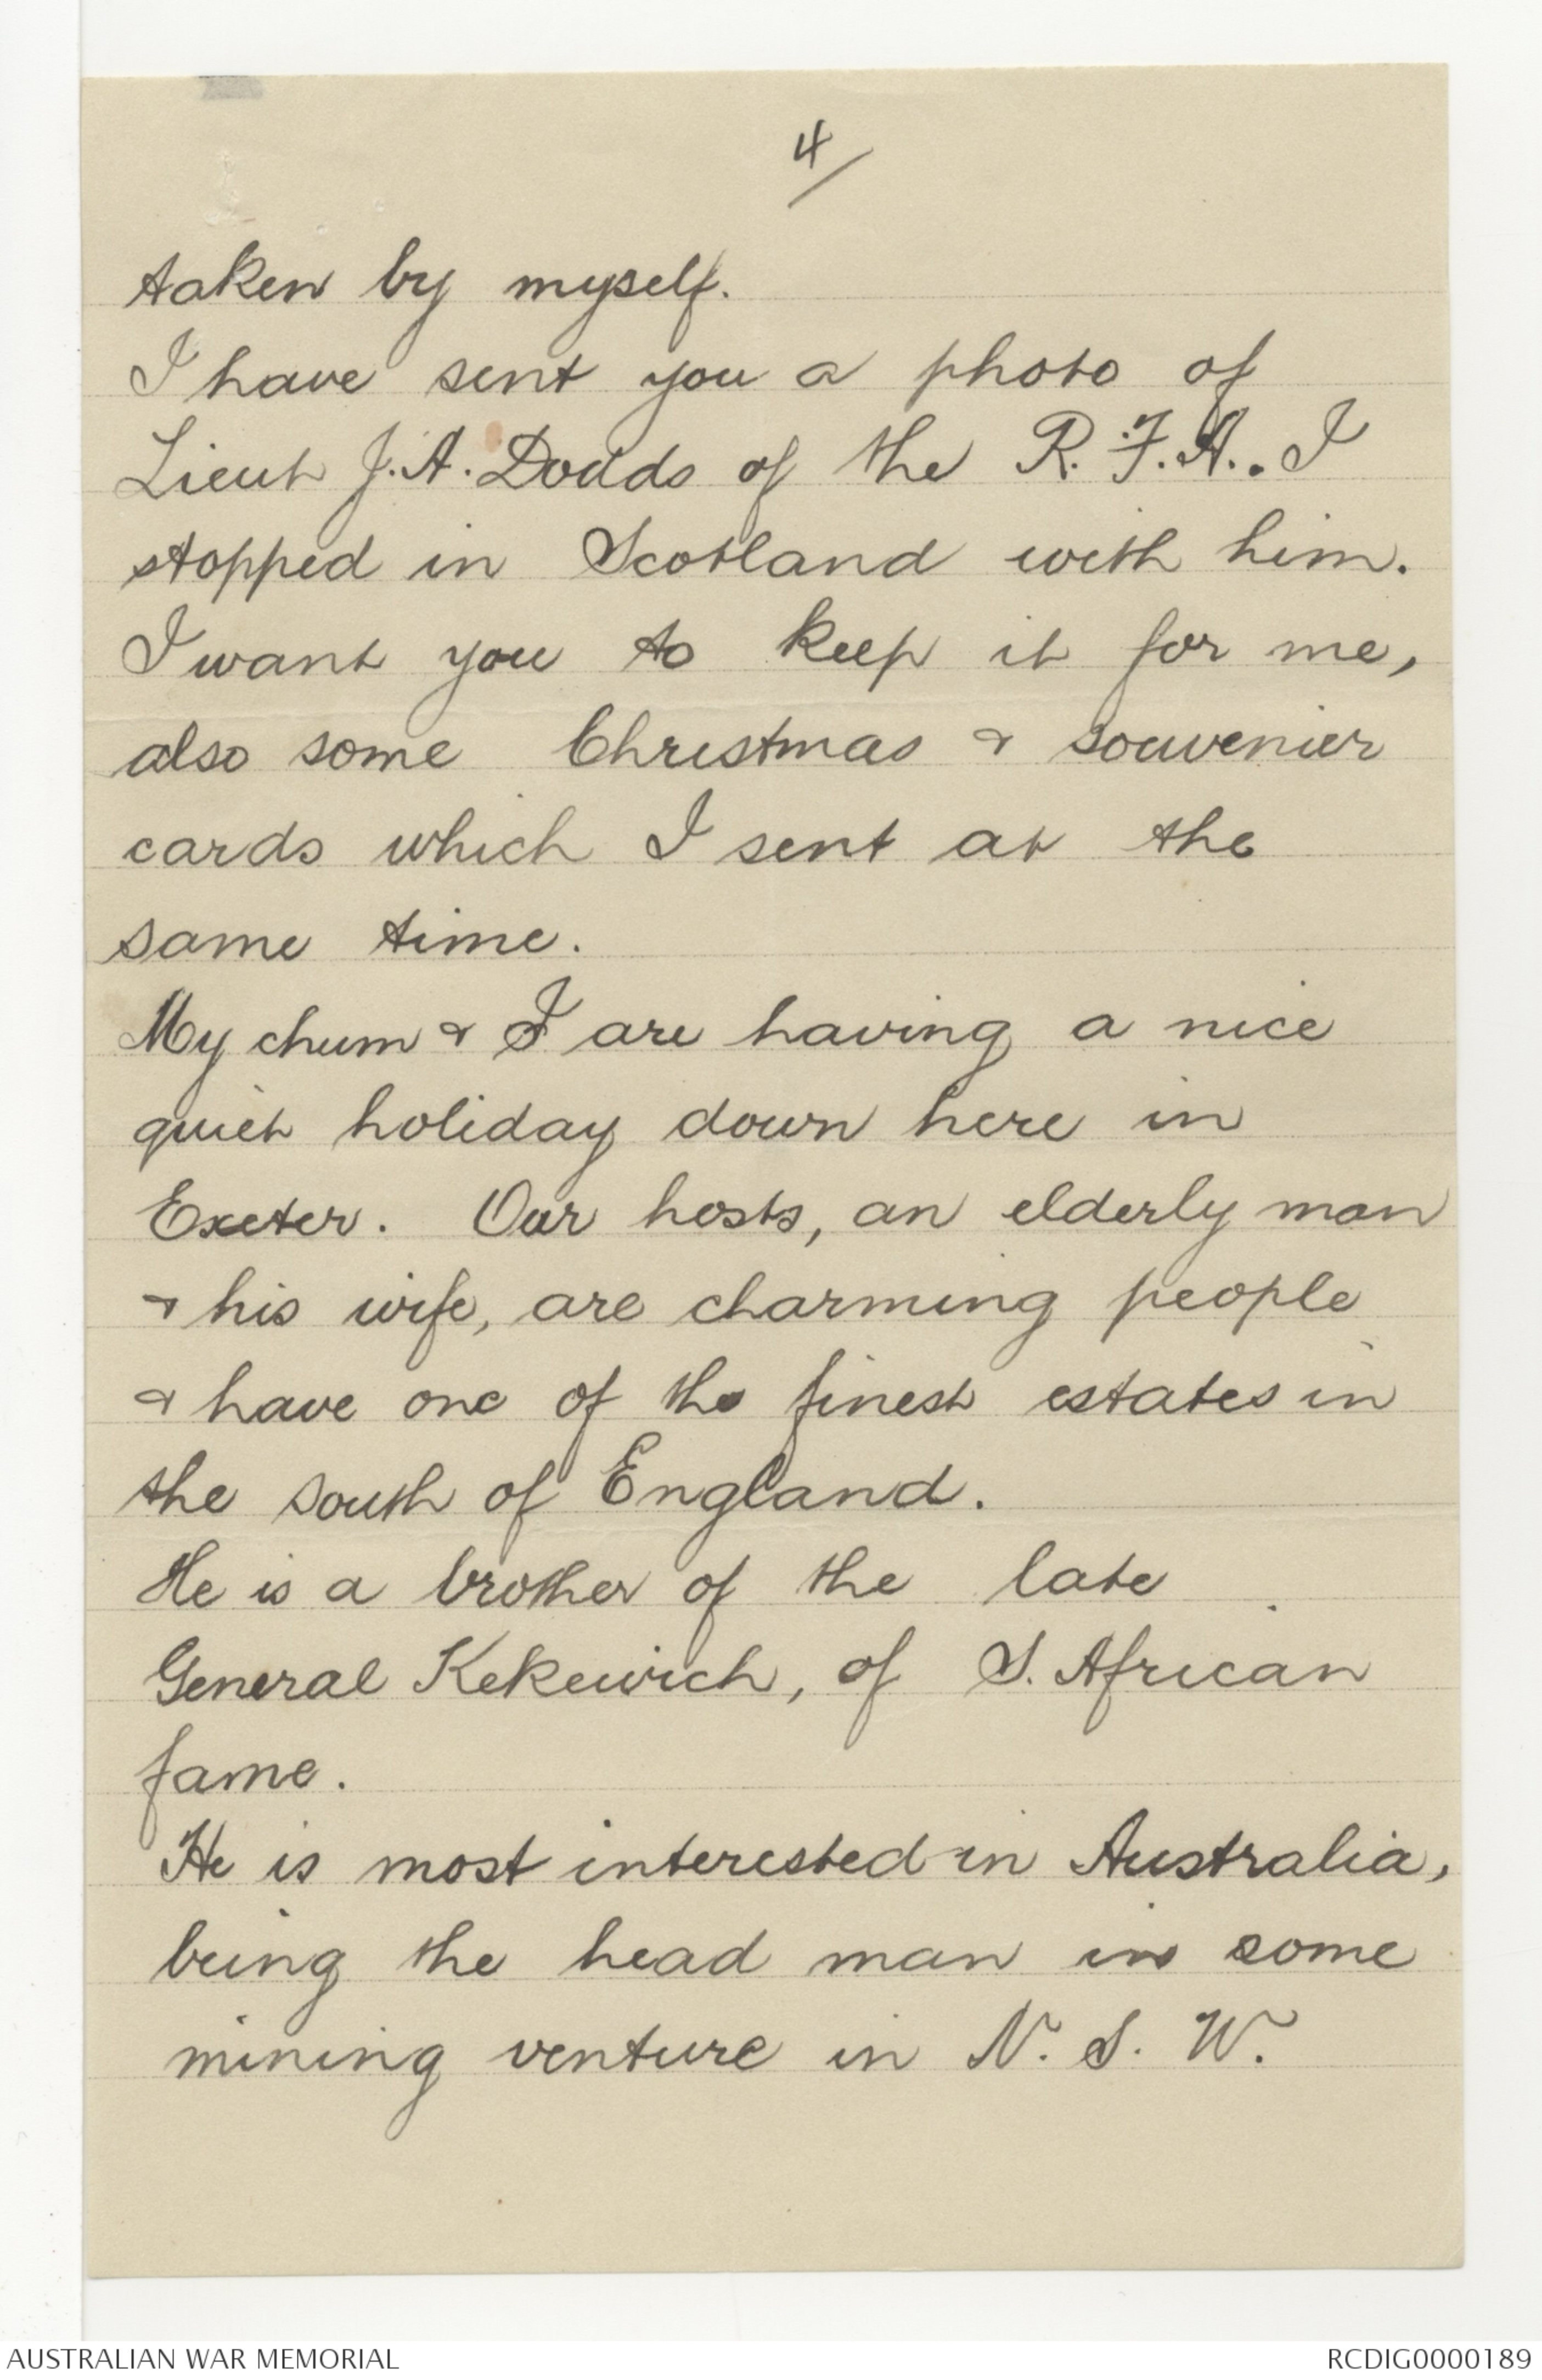 4/
taken by myself.
I have sent you a photo of
Lieut J.A. Dodds of the R.F.A.. I
stopped in Scotland with him.
I want you to keep it for me,
also some Christmas & souvenier
cards which I sent at the
same time.
My chum & I are having a nice
quiet holiday down here in
Exeter. Our hosts, an elderly man
& his wife, are charming people
& have one of the finest estates in
the south of England.
He is a brother of the late
General Kekewich, of S. African
fame.
He is most interested in Australia,
being the head man in some
mining venture in N. S. W.
AUSTRALIAN WAR MEMORIAL
RCDIG0000189